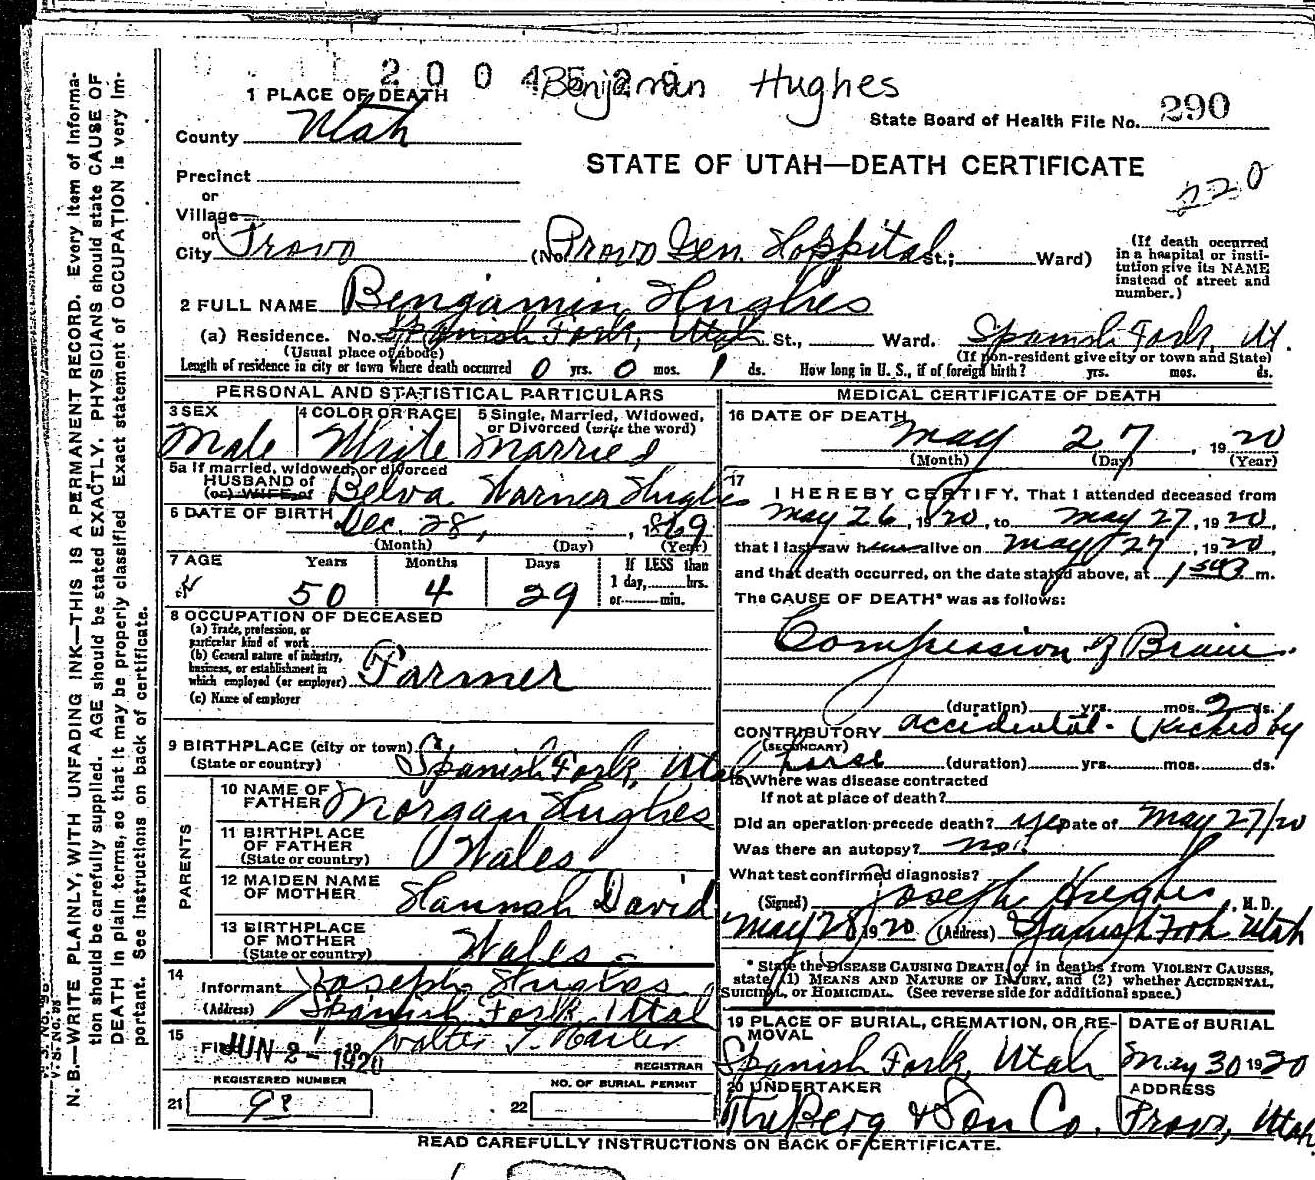 2 0 0 4 5 2 9
Benjaman Hughes
1 PLACE OF DEATH
County Utah
State Board of Health File No. 290
STATE OF UTAH—DEATH CERTIFICATE
220
Precinct
or
Village
or
City Provo (No. Provo Gen. Hospital St.; Ward)
(If death occurred in a hospital or institution give its NAME instead of street and number.)
2 FULL NAME Benjamin Hughes
(a) Residence. No. Spanish Fork, Utah St., Ward. Spanish Fork, Ut.
(Usual place of abode) (If non-resident give city or town and State)
Length of residence in city or town where death occurred 0 yrs. 0 mos. 1 ds. How long in U. S., if of foreign birth? yrs. mos. ds.
PERSONAL AND STATISTICAL PARTICULARS
3 SEX Male
4 COLOR OR RACE White
5 Single, Married, Widowed, or Divorced (write the word) Married
5a If married, widowed, or divorced
HUSBAND of
(or) WIFE of Belva Warner Hughes
6 DATE OF BIRTH Dec. 28, 1869
(Month) (Day) (Year)
7 AGE Years Months Days If LESS than
1 day, hrs.
or min.
50 4 29
8 OCCUPATION OF DECEASED
(a) Trade, profession, or
particular kind of work
(b) General nature of industry,
business, or establishment in
which employed (or employer) Farmer
(c) Name of employer
9 BIRTHPLACE (city or town)
(State or country) Spanish Fork, Utah
PARENTS
10 NAME OF FATHER Morgan Hughes
11 BIRTHPLACE OF FATHER
(State or country) Wales
12 MAIDEN NAME OF MOTHER Hannah David
13 BIRTHPLACE OF MOTHER
(State or country) Wales
14
Informant Joseph Hughes
(Address) Spanish Fork Utah
15 JUN 2 - 1920 Walter T. Hasler
REGISTRAR
REGISTERED NUMBER NO. OF BURIAL PERMIT
21 98 22
MEDICAL CERTIFICATE OF DEATH
16 DATE OF DEATH
May 27, 1920
(Month) (Day) (Year)
17
I HEREBY CERTIFY, That I attended deceased from
May 26, 1920, to May 27, 1920,
that I last saw h alive on May 27, 1920,
and that death occurred, on the date stated above, at m.
The CAUSE OF DEATH* was as follows:
Compression of Brain.
(duration) yrs. mos. 2 ds.
CONTRIBUTORY accidental - (kicked by
(SECONDARY) horse (duration) yrs. mos. ds.
18 Where was disease contracted
If not at place of death?
Did an operation precede death? yes Date of May 27/20
Was there an autopsy? no.
What test confirmed diagnosis?
(Signed) Joseph Hughes, M. D.
May 28 1920 (Address) Spanish Fork Utah
* State the DISEASE CAUSING DEATH, or in deaths from VIOLENT CAUSES,
state (1) MEANS AND NATURE OF INJURY, and (2) whether ACCIDENTAL,
SUICIDAL, OR HOMICIDAL. (See reverse side for additional space.)
19 PLACE OF BURIAL, CREMATION, OR REMOVAL
Spanish Fork, Utah
DATE of BURIAL
May 30 1920
20 UNDERTAKER
The Berg & Son Co.
ADDRESS
Provo, Utah
READ CAREFULLY INSTRUCTIONS ON BACK OF CERTIFICATE.
N. B.—WRITE PLAINLY, WITH UNFADING INK—THIS IS A PERMANENT RECORD. Every item of informa-
tion should be carefully supplied. AGE should be stated EXACTLY. PHYSICIANS should state CAUSE OF
DEATH in plain terms, so that it may be properly classified. Exact statement of OCCUPATION is very im-
portant. See instructions on back of certificate.